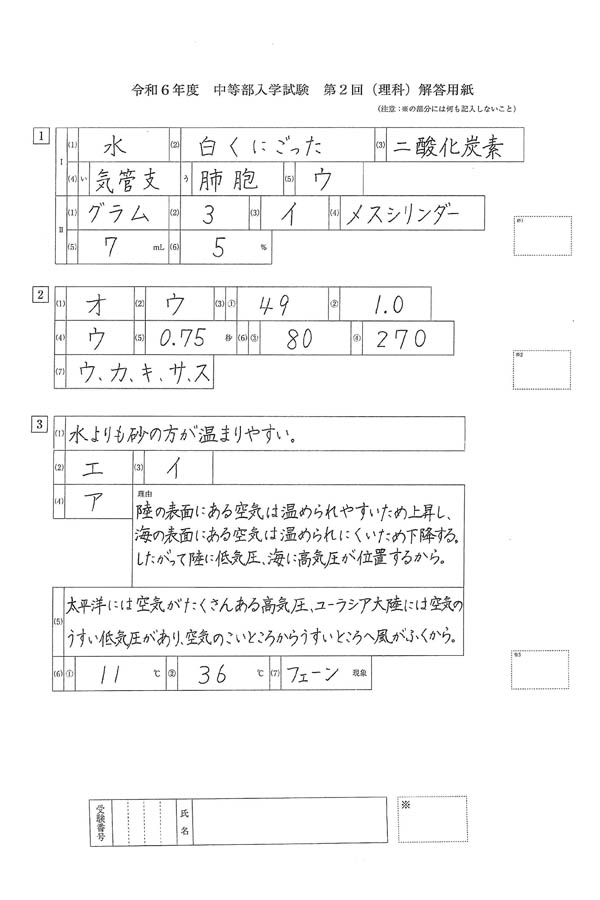 令和6年度 中等部入学試験 第2回(理科)解答用紙
(注意:※の部分には何も記入しないこと)
1
I (1) 水 (2) 白くにごった (3) 二酸化炭素
(4) い 気管支 う 肺胞 (5) ウ
II (1) グラム (2) 3 (3) イ (4) メスシリンダー
(5) 7 mL (6) 5 %
※1
2
(1) オ (2) ウ (3) ① 49 ② 1.0
(4) ウ (5) 0.75 秒 (6) ③ 80 ④ 270
※2
(7) ウ、カ、キ、サ、ス
3
(1) 水よりも砂の方が温まりやすい。
(2) エ (3) イ
(4) ア 理由
陸の表面にある空気は温められやすいため上昇し、
海の表面にある空気は温められにくいため下降する。
したがって陸に低気圧、海に高気圧が位置するから。
(5) 太平洋には空気がたくさんある高気圧、ユーラシア大陸には空気の
うすい低気圧があり、空気のこいところからうすいところへ風がふくから。
(6) ① 11 ℃ ② 36 ℃ (7) フェーン 現象
※3
受験番号 氏名 ※